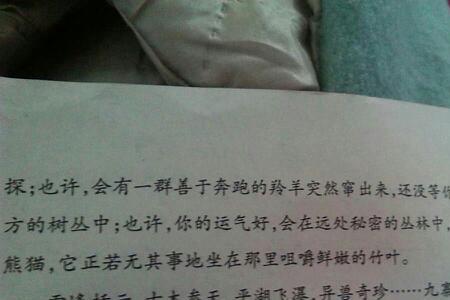 探;也许,会有一群善于奔跑的羚羊突然窜出来,还没等你
方的树丛中;也许,你的运气好,会在远处秘密的丛林中,
熊猫,它正若无其事地坐在那里咀嚼鲜嫩的竹叶。
平湖飞瀑,异兽奇珍……九寨